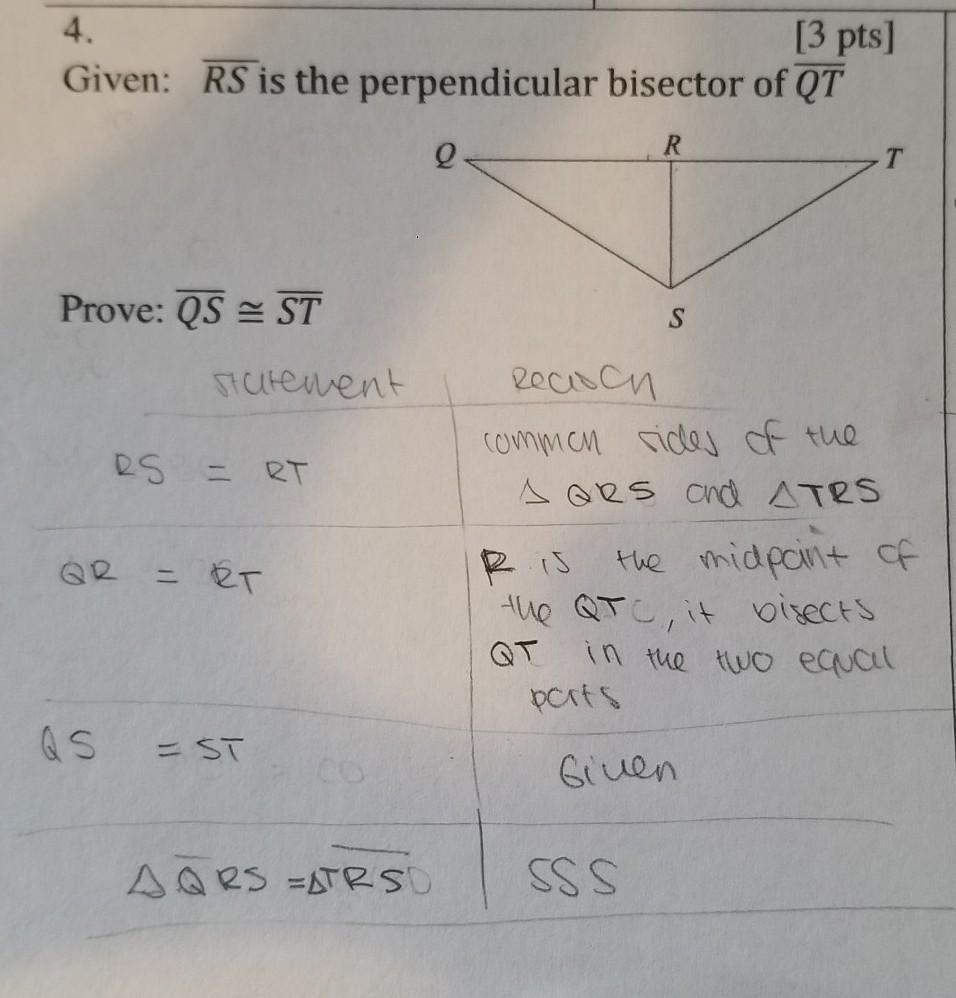 4.
[3 pts]
Given: RS is the perpendicular bisector of QT
Q
R
T
S
Prove: QS ≅ ST
statement
Reason
RS = RT
common sides of the
Δ QRS and ΔTRS
QR = RT
R is the midpoint of
the QT, it bisects
QT in the two equal
parts
QS = ST
Given
Δ QRS = ΔTRS
SSS